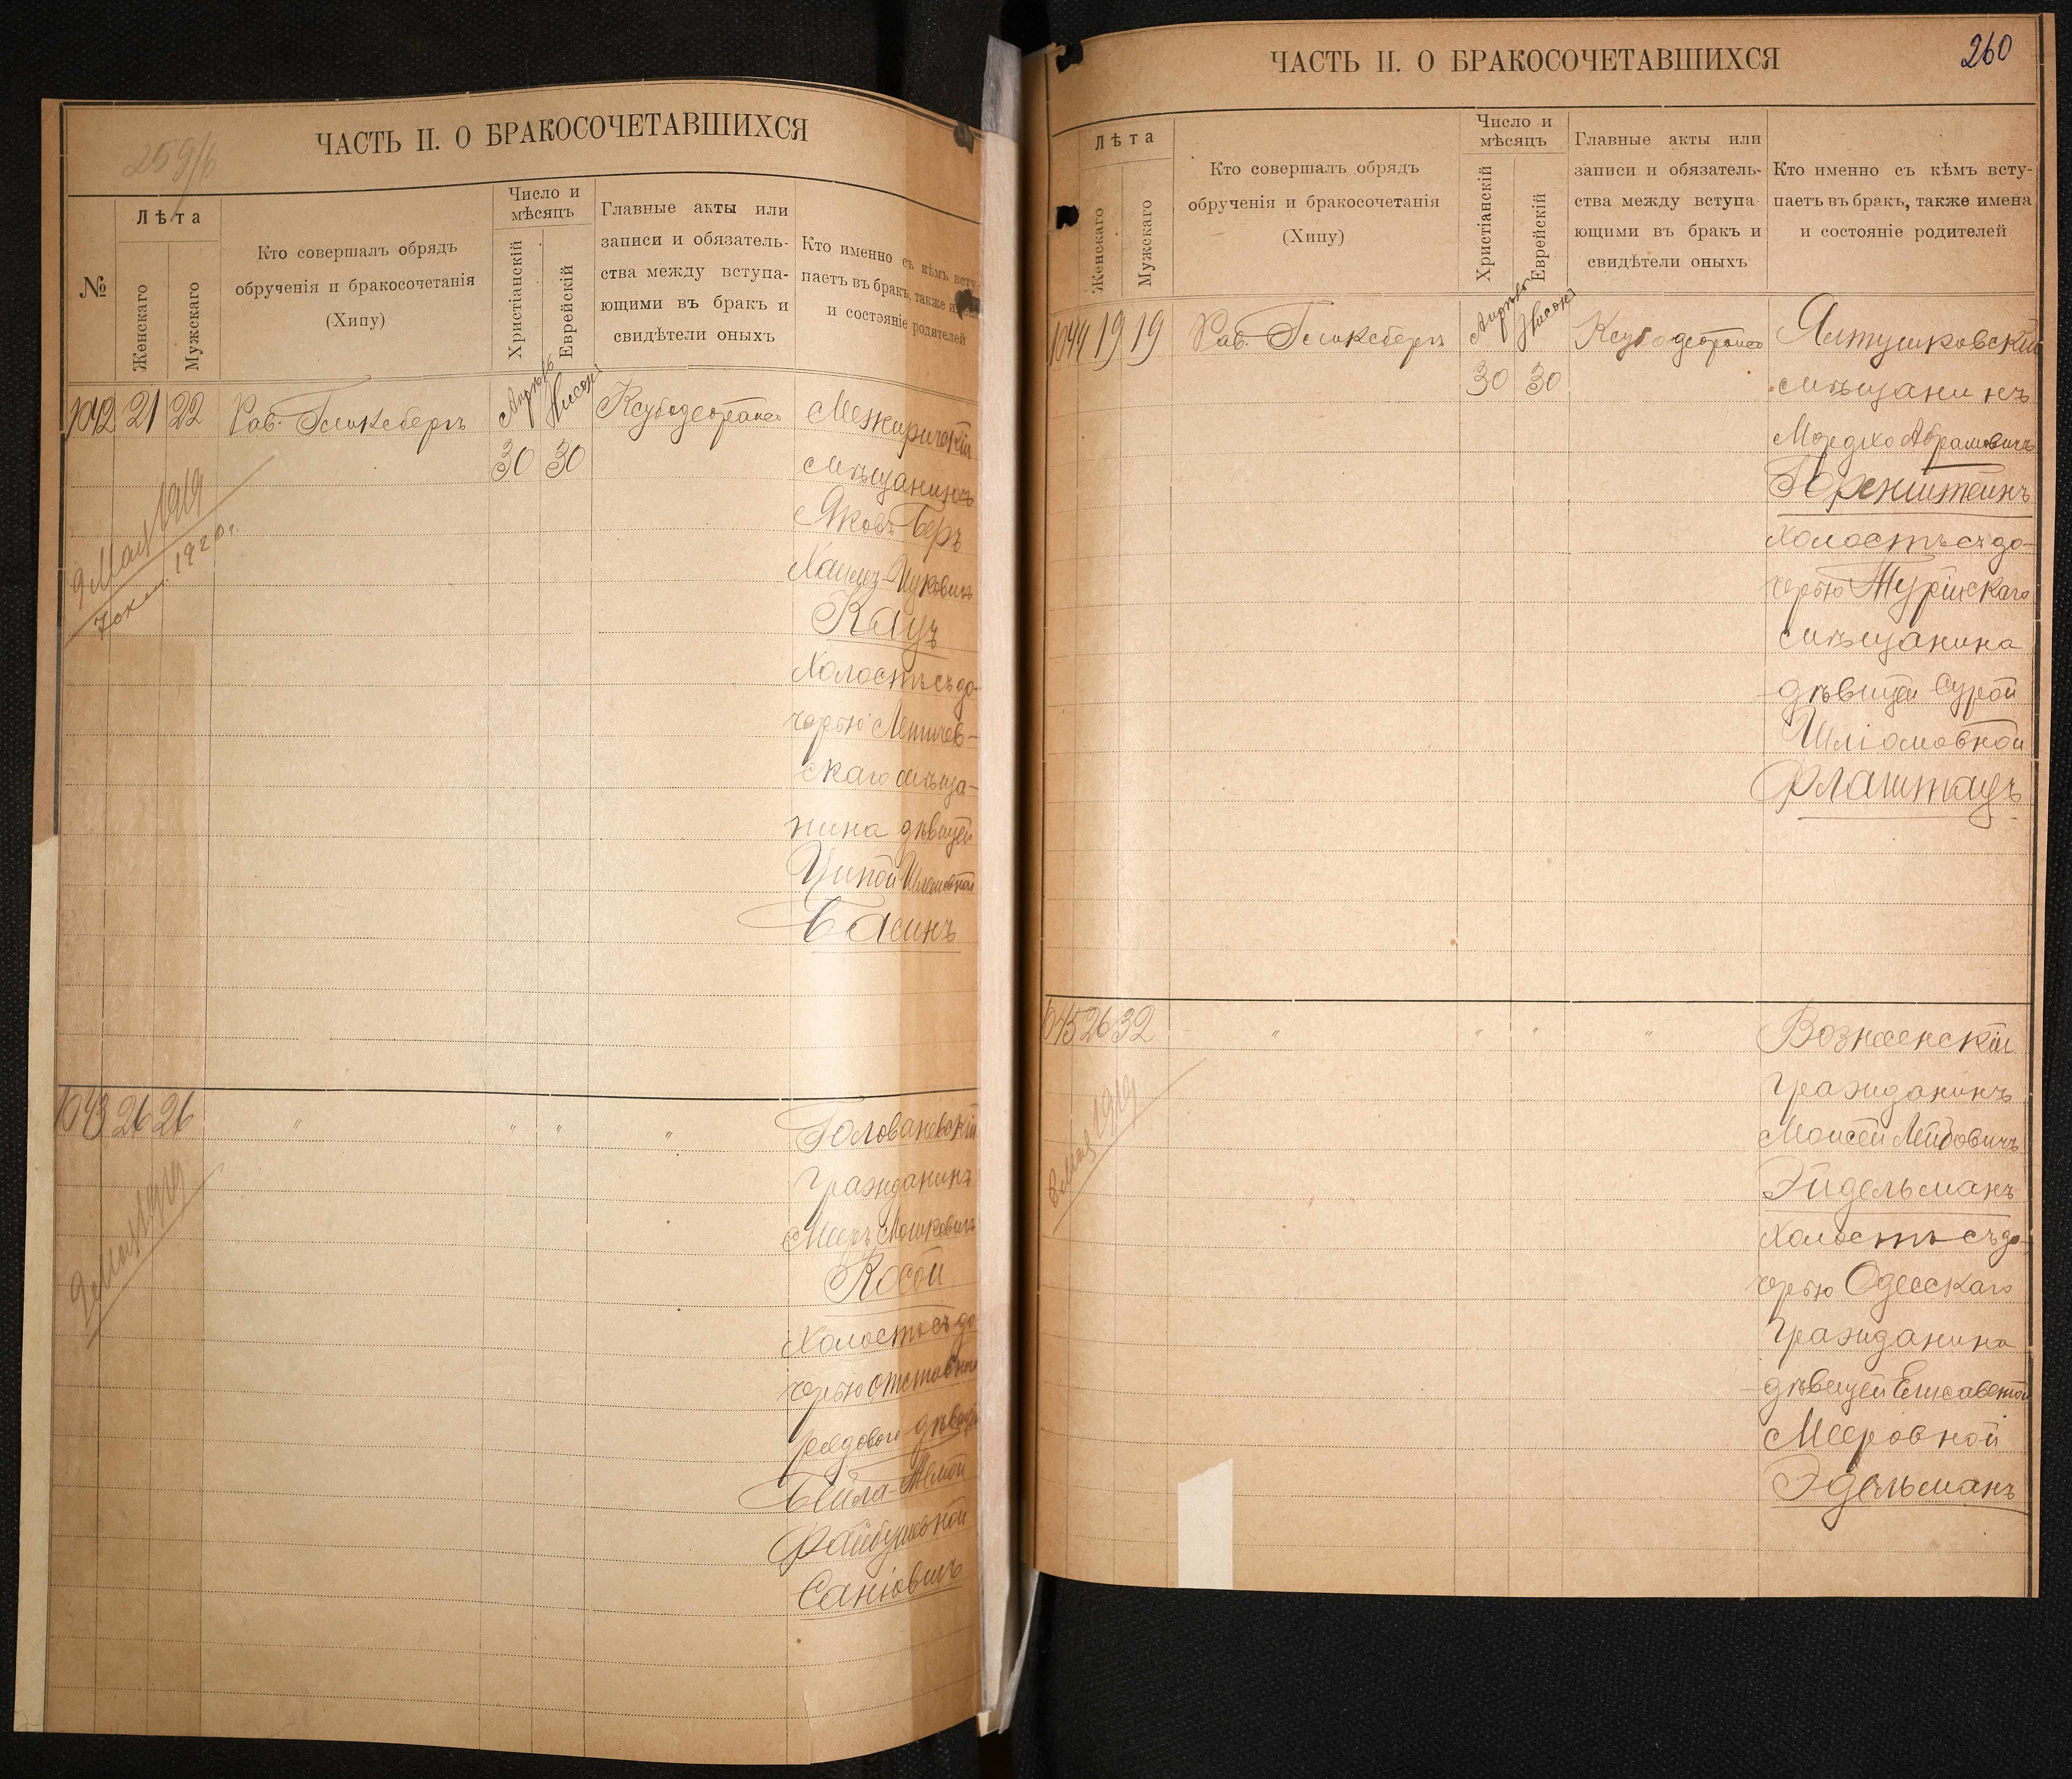 259/б
ЧАСТЬ II. О БРАКОСОЧЕТАВШИХСЯ
№
Лѣта
Женскаго
Мужскаго
Кто совершалъ обрядъ
обрученія и бракосочетанія
(Хипу)
Число и
мѣсяцъ
Христіанскій
Еврейскій
Главные акты или
записи и обязатель-
ства между вступа-
ющими въ бракъ и
свидѣтели оныхъ
Кто именно съ кѣмъ всту-
паетъ въ бракъ, также имена
и состояніе родителей
1042 21 22 Рав. Гликсбергъ Апрѣль Нисонъ
30 30
Межиричскій
мѣщанинъ
Яковъ Беръ
Хаимъ-Ицковичъ
Кацъ
Холостъ съ до-
черью Летичев-
скаго мѣща-
нина дѣвицей
Ципой Шлемовной
Басинъ
9 Мая 1919
1920 г.
1043 26 26 " " " "
Голованевскій
Гражданинъ
Мееръ Мошковичъ
Косой
Холостъ съ до
черью отставного
рядового дѣвицей
Бейла-
Файбишовной
Саніовичъ
9 Мая 1919
ЧАСТЬ II. О БРАКОСОЧЕТАВШИХСЯ
260
Лѣта
Женскаго
Мужскаго
Кто совершалъ обрядъ
обрученія и бракосочетанія
(Хипу)
Число и
мѣсяцъ
Христіанскій
Еврейскій
Главные акты или
записи и обязатель-
ства между вступа
ющими въ бракъ и
свидѣтели оныхъ
Кто именно съ кѣмъ всту-
паетъ въ бракъ, также имена
и состояніе родителей
1044 19 19 Рав. Гликсбергъ Апрѣль Нисонъ
30 30
Ялтушковскій
мѣщанинъ
Мордко Абрамовичъ
Горенштейнъ
Холостъ съ до-
черью Турійскаго
мѣщанина
дѣвицей Сурой
Шліомовной
Флаштацъ
1045 26 32 " " " "
Вознесенскій
Гражданинъ
Моисей Лейбовичъ
Эйдельманъ
Холостъ съ до-
черью Одесскаго
Гражданина
дѣвицей Елисаветой
Мееровной
Эдельманъ
8 Мая 1919